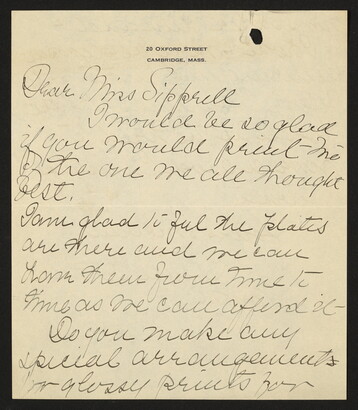 20 OXFORD STREET
CAMBRIDGE, MASS.
Dear Miss Sipprell
I would be so glad
if you would print me
of the one we all thought
best.
I am glad to feel the plates
are there and we can
have them from time to
time as we can afford it -
Do you make any
special arrangements
for glossy prints for